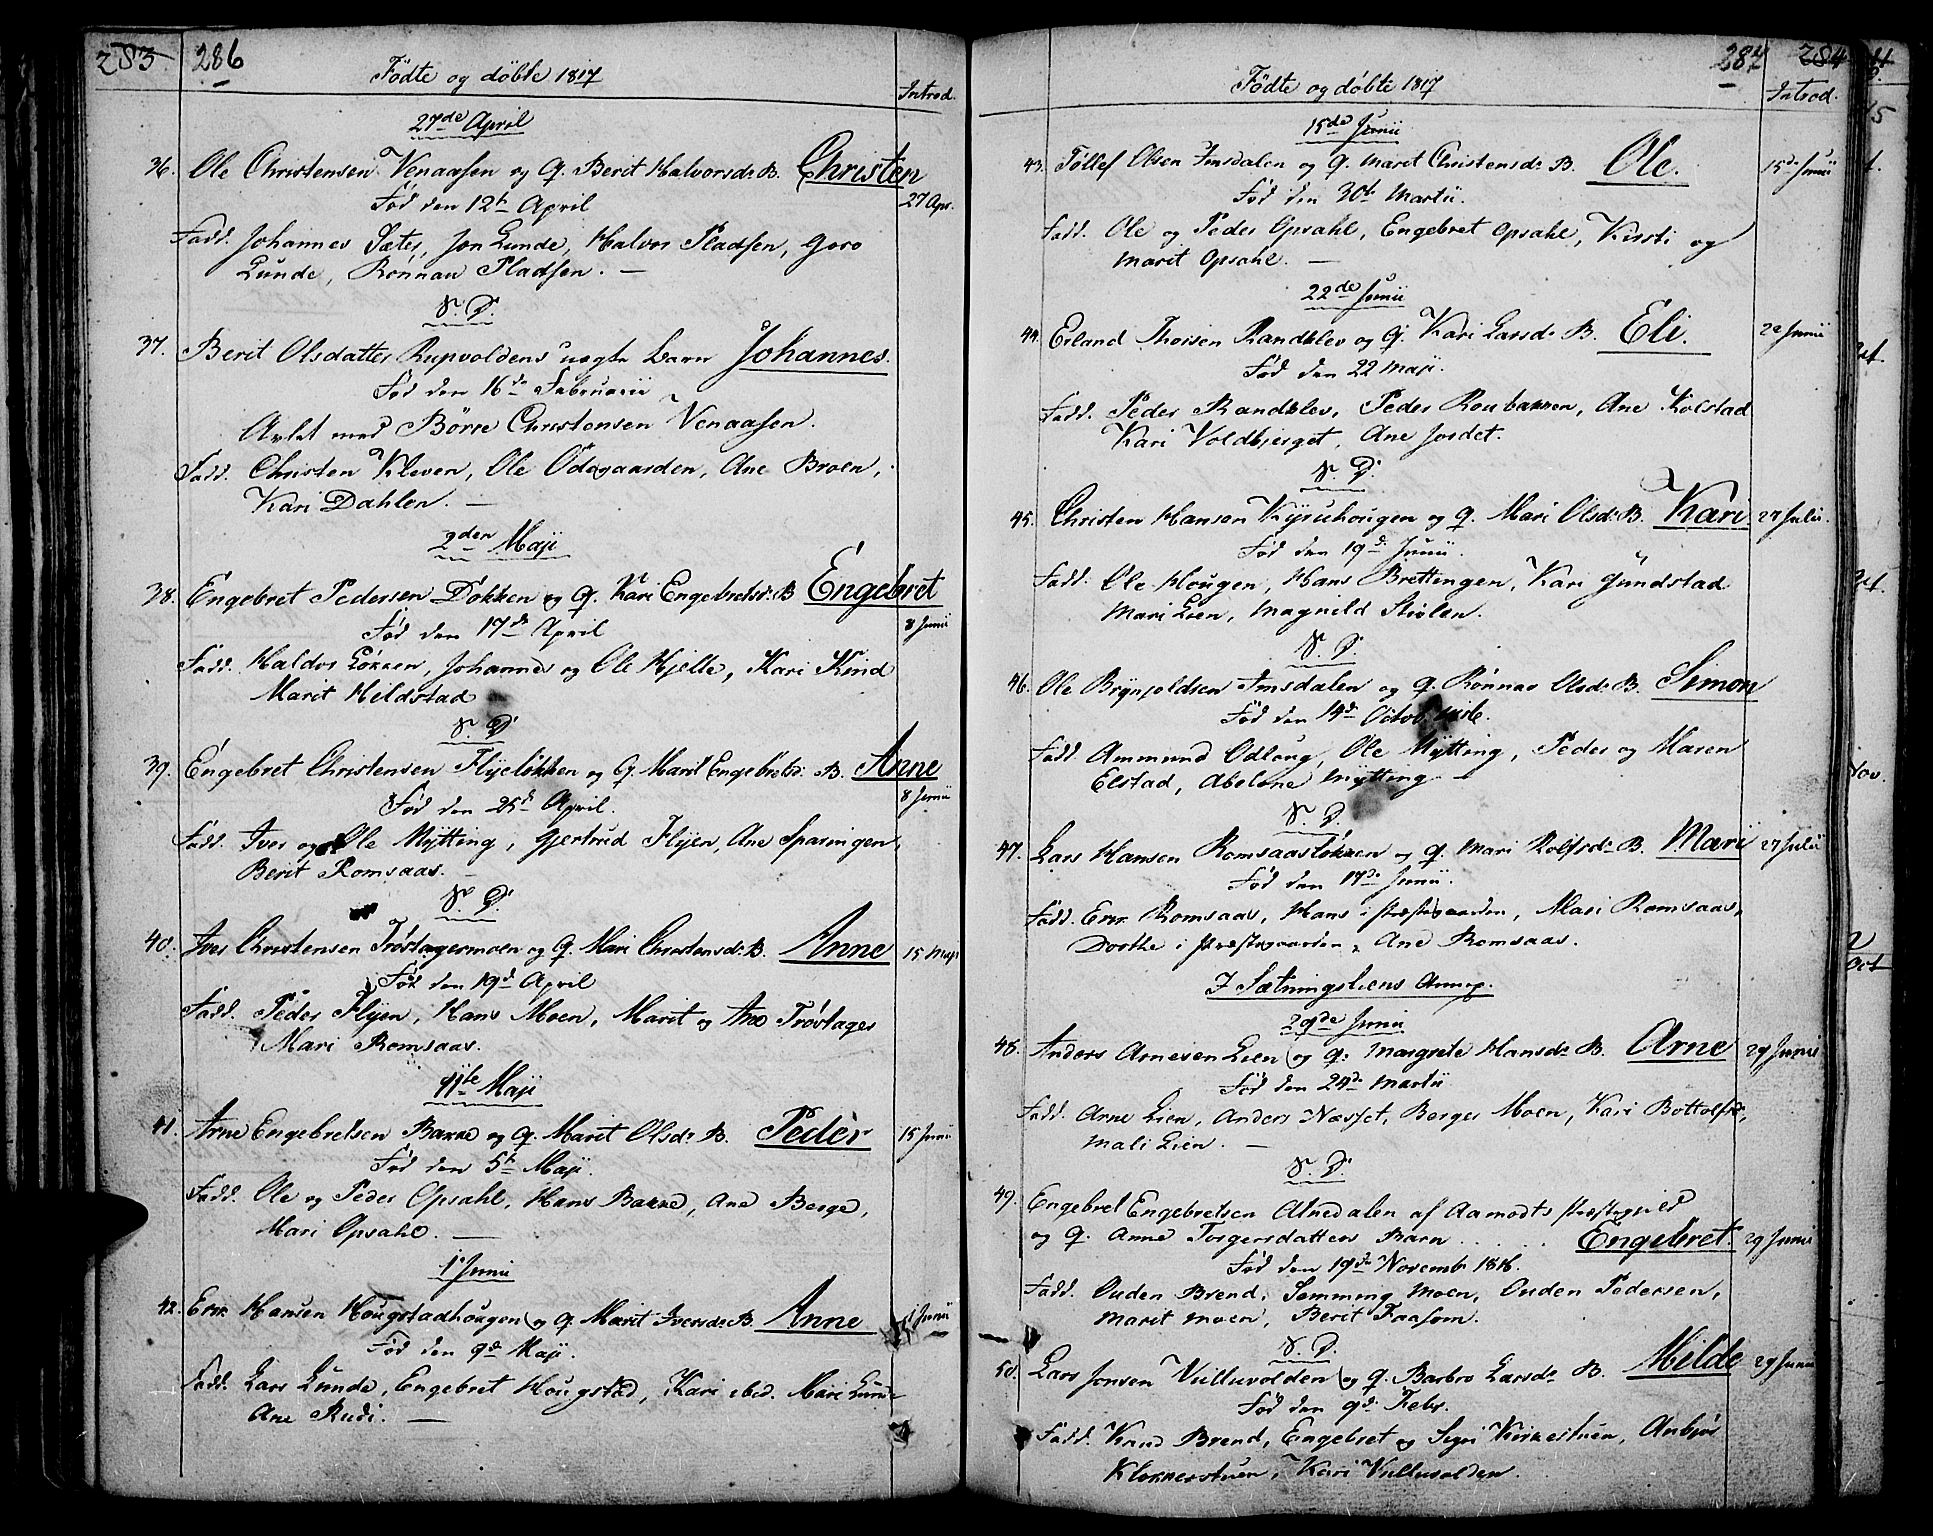 283 286
Fødte og døbte 1817
Introd.
27de April
36. Ole Christensen Venaasen og Q. Berit Halvorsdr B. Christen
Fød den 12te April 27 Apr.
Fadd. Johannes Sæter, Jon Lunde, Halvor Pladsen, Goro
Lunde, Rønnau Pladsen. —
S. D.
37. Berit Olsdatter Rupvoldens uægte Barn Johannes.
Fød den 16de Februarii
Avlet med Børre Christensen Venaasen.
Fadd. Christen Kleven, Ole Odegaarden, Ane Broen,
Kari Dahlen. —
2den Maji
38. Engebret Pedersen Dokken og Q. Kari Engebretsdr B Engebret
Fød den 17de April 8 Junii
Fadd. Haldor Løkken, Johannes og Ole Hjelle, Kari Kind
Marit Hildstad
S. D.
39. Engebret Christensen Flyeløkken og Q. Marit Engebretsdr B. Anne
Fød den 25de April. 8 Junii
Fadd. Iver og Ole Mytting, Gjertrud Flyen, Ane Sparingen,
Berit Romsaas.
S. D.
40. Iver Christensen Trøstagermoen og Q. Mari Christensdr B. Anne 15 Maji
Fød den 19de April
Fadd. Peder Flyen, Hans Moen, Marit og Ane Trøstager
Mari Romsaas.
11te Maji
41. Arne Engebretsen Bakke og Q. Marit Olsdr B. Peder 15 Junii
Fød den 5te Maji.
Fadd. Ole og Peder Opsahl, Hans Bakke, Ane Berge,
Mari Opsahl. —
1 Junii
42. Erik Hansen Hougstadhougen og Q. Marit Iversdr B. Anne 1 Junii
Fød den 9de Maji.
Fadd. Lars Lunde, Engebret Hougstad, Kari ibid. Mari Lunde
Ane Rudi. —
287 284
Fødte og døbte 1817
Introd.
15de Junii
43. Tollef Olsen Amsdalen og Q. Marit Christensdr B. Ole. 15de Junii
Fød den 30te Martii.
Fadd. Ole og Peder Opsahl, Engebret Opsahl, Kirsti og
Marit Opsahl. —
22de Junii
44. Erland Thorsen Randklev og Q. Kari Larsdr B. Eli. 22 Junii
Fød den 22 Maji.
Fadd. Peder Randklev, Peder Roubakken, Ane Kolstad
Kari Voldbjerget, Ane Jordet.
S. D.
45. Christen Hansen Kyruhougen og Q. Mari Olsdr B. Kari 27 Julii.
Fød den 19de Junii.
Fadd. Ole Hougen, Hans Brettingen, Kari Gundstad
Mari Lien, Magnild Stulen.
S. D.
46. Ole Brynjoldsen Amsdalen og Q. Rønnau Olsdr B. Simon
Fød den 14de Octob. 1816.
Fadd. Ammund Odloug, Ole Mytting, Peder og Maren
Elstad, Abelone Mytting —
S. D.
47. Lars Hansen Romsaasløkken og Q. Mari Rolfsdr B. Mari 27 Julii
Fød den 17de Junii.
Fadd. Erik Romsaas, Hans i Præstegaarden, Mari Romsaas,
Dorthe i Præstegaarden, Ane Romsaas.
I Sætningsliens Annex.
29de Junii
48. Anders Arnesen Lien og Q. Margrete Hansdr B. Arne 29 Junii
Fød den 24de Martii
Fadd. Arne Lien, Anders Næsset, Berger Moen, Kari Bottolfsdr,
Mali Lien. —
S. D.
49. Engebret Engebretsen Atnedalen af Aamodts Præstegield
og Q. Anne Torgersdatters Barn . . . . Engebret. 29 Junii
Fød den 19de Novembr 1816.
Fadd. Ouden Brend, Semming Moen, Ouden Pedersen,
Marit Moen, Berit Faasom.
S. D.
50. Lars Jonsen Vulluvolden og Q. Barbro Larsdr B. Milde 29 Junii
Fød den 9de Febr.
Fadd. Knud Brend, Engebret og Sigri Kirkestuen, Anbjør
Klokkerstuen, Kari Vulluvolden.